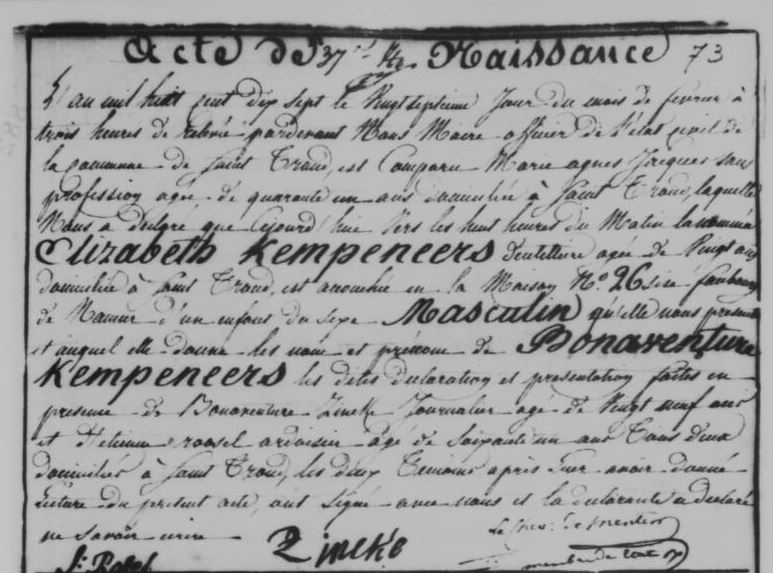 Acte de Naissance 73
L'an mil huit cent dix sept le Vingtseptieme Jour du mois de fevrier à
trois heures de relevée pardevant Nous Maire officier de l'etat civil de
la commune de Saint Trond, est Comparu Marie agnes Jacques sans
profession agée de quarante un ans domiciliée à Saint Trond, laquelle
Nous a declaré que cejourd'hui Vers les huit heures du Matin la nommée
Elizabeth Kempeneers dentelliere agée de Vingt ans
domiciliée à Saint Trond, est accouchée en la Maison N.o 26 sise faubourg
de Namur d'un enfant du sexe Masculin qu'elle nous presente
et auquel elle donne les nom et prénom de Bonaventure
Kempeneers les dites declaration et presentation faites en
presence de Bonaventure Zineke Journalier agé de Vingt neuf ans
et Etienne ardoisier agé de Soixante un ans Tous deux
domiciliés à Saint Trond, les deux Temoins après Leur avoir donné
Lecture du present acte, ont signé avec nous et la declarante a declaré
ne Savoir ecrire Zineke